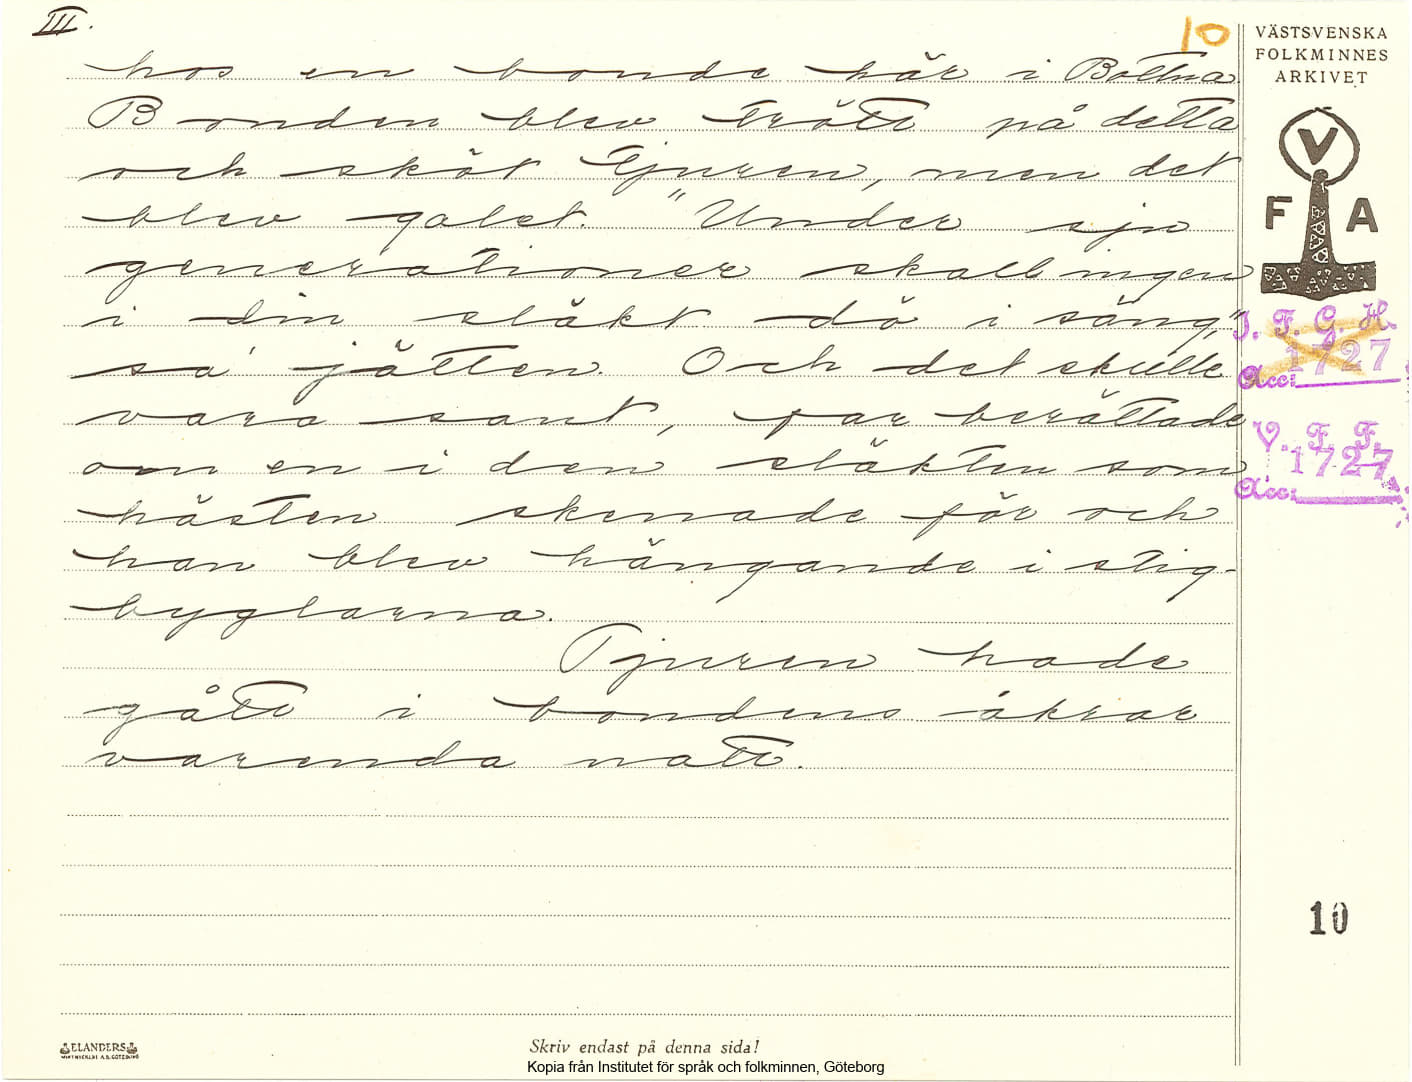 III.
10
VÄSTSVENSKA
FOLKMINNES
ARKIVET
V
F A
hos en bonde här i Bottna
Bonden blev trött på detta
och sköt tjuren, men det
blev galet. "Under sju
generationer skall ingen
i din släkt dö i säng,"
sa' jätten. Och det skulle
vara sant, far berättade
om en i den släkten som
hästen skenade för och
han blev hängande i stig-
byglarna.
Tjuren hade
gått i bondens åkrar
varenda natt.
I. F. G. H.
1727
Acc:
V. F. F.
1727
Acc:
10
ELANDERS
Skriv endast på denna sida!
Kopia från Institutet för språk och folkminnen, Göteborg